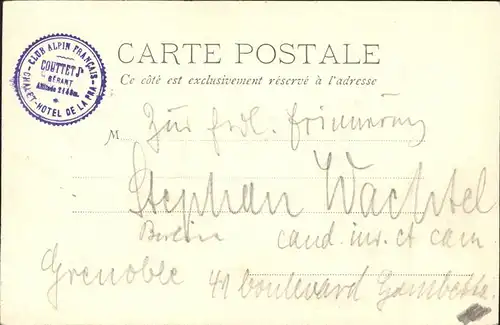 CLUB ALPIN FRANÇAIS
COUTTET Jr
GÉRANT
Altitude 2140m.
CHALET-HOTEL DE LA PRA
CARTE POSTALE
Ce côté est exclusivement réservé à l'adresse
M
Zur frdl. Erinnerung
Stephan Wachtel
Berlin cand. iur. et cam
Grenoble 41 boulevard Gambetta.